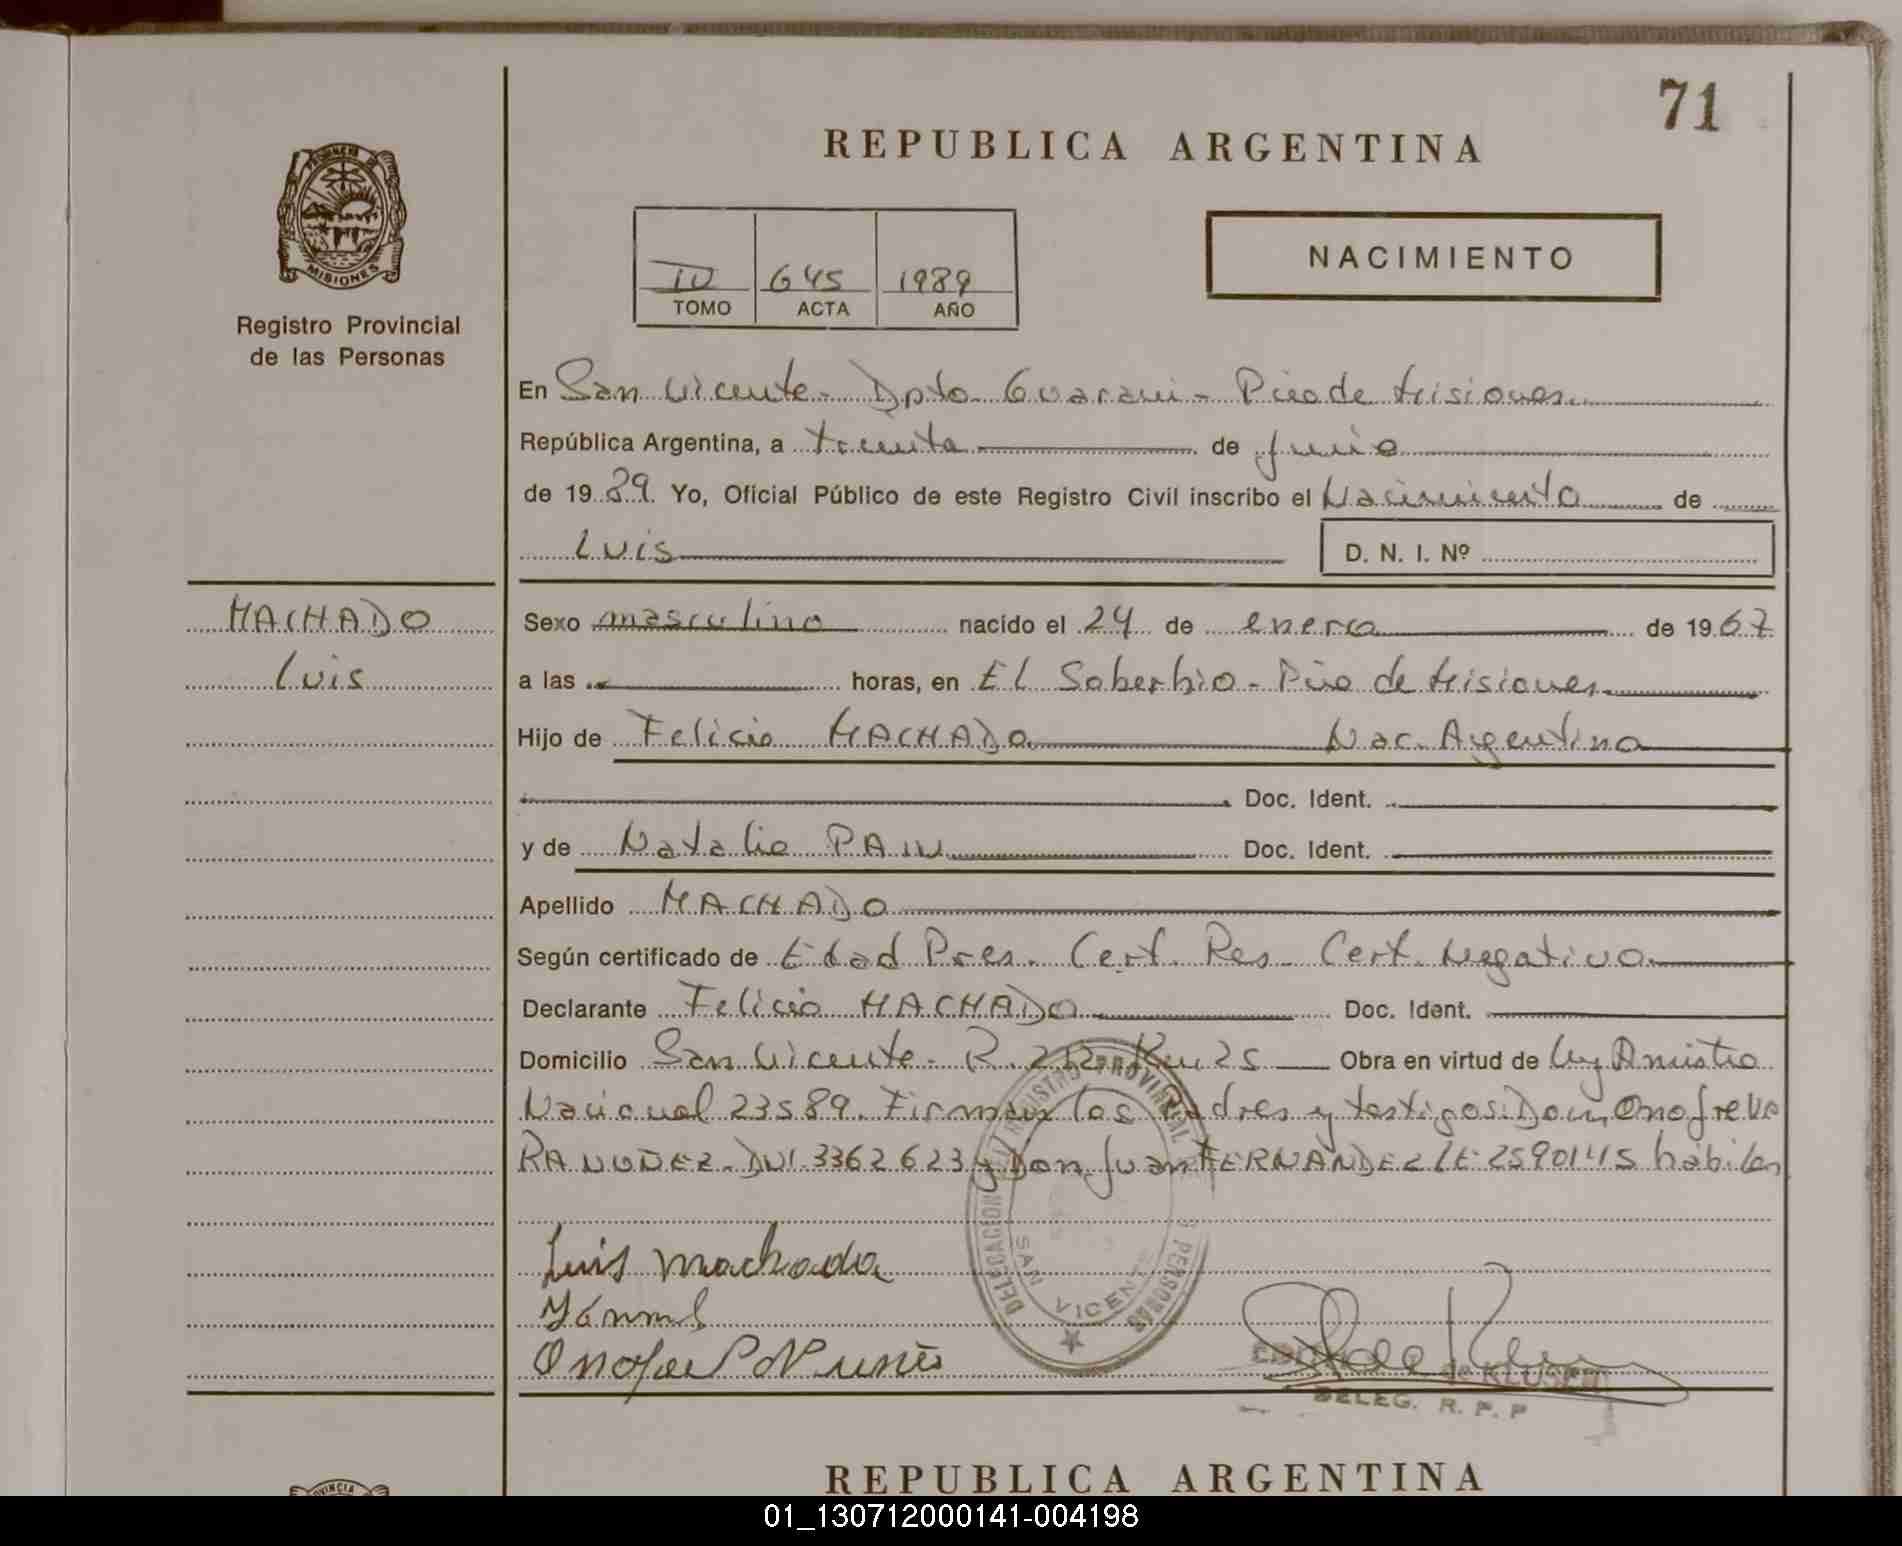 71
REPUBLICA ARGENTINA
PROVINCIA DE
MISIONES
Registro Provincial
de las Personas
IV 645 1989
TOMO ACTA AÑO
NACIMIENTO
En San Vicente - Dpto Guarani - Pcia de Misiones
República Argentina, a treinta de junio
de 1989. Yo, Oficial Público de este Registro Civil inscribo el Nacimiento de
Luis D. N. I. Nº
MACHADO
Luis
Sexo masculino nacido el 24 de enero de 1967
a las horas, en El Soberbio - Pcia de Misiones
Hijo de Felicio MACHADO Nac. Argentina
Doc. Ident.
y de Natalia PAIN Doc. Ident.
Apellido MACHADO
Según certificado de Edad Pres. Cert. Res. Cert. Negativo
Declarante Felicio MACHADO Doc. Ident.
Domicilio San Vicente - R. 212 Km 25 Obra en virtud de Ley Amistia
Nacional 23589. Firman los Padres y testigos: Don Onofre Ve
RA NUÑEZ - DNI. 3362623 y Don Juan FERNANDEZ LE 2590145 hábiles
DELEGACION REGISTRO PROVINCIAL PERSONAS
SAN VICENTE
Luis Machado
Onofre Nunes
de KLUSEN
DELEG. R. P. P
REPUBLICA ARGENTINA
PROVINCIA
01_130712000141-004198